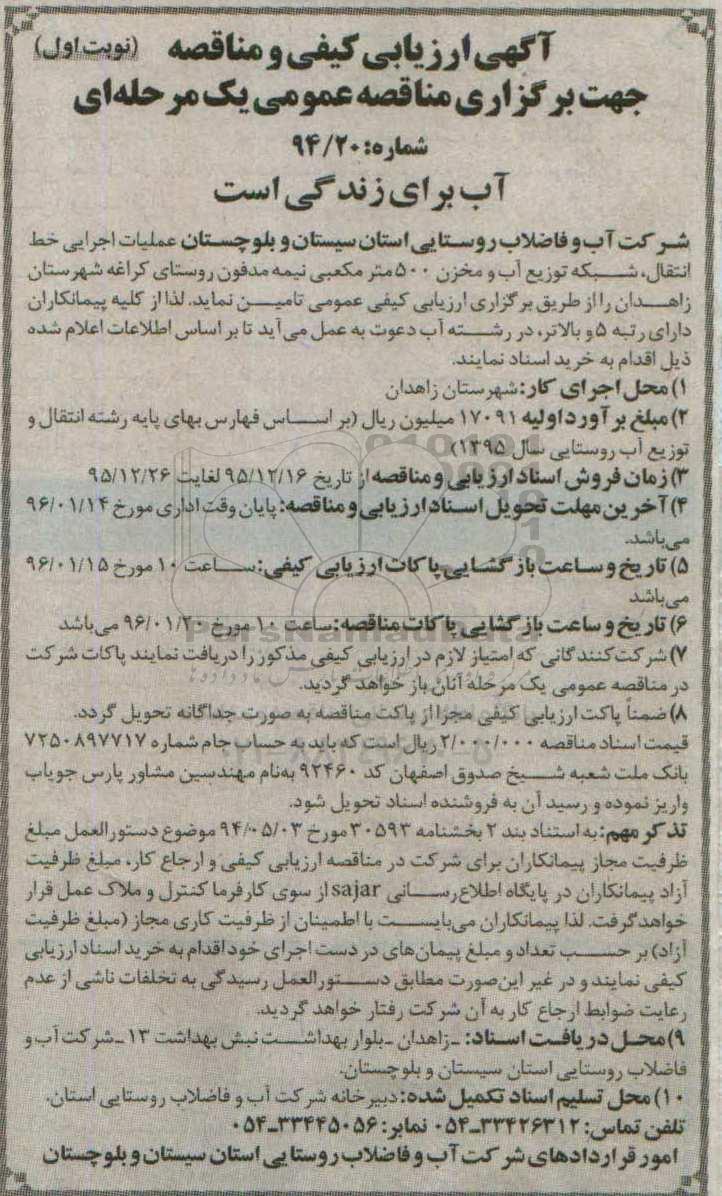 آگهی ارزیابی کیفی و مناقصه (نوبت اول)
جهت برگزاری مناقصه عمومی یک مرحله‌ای
شماره: ۹۴/۲۰
آب برای زندگی است
شرکت آب و فاضلاب روستایی استان سیستان و بلوچستان عملیات اجرایی خط
انتقال، شبکه توزیع آب و مخزن ۵۰۰ متر مکعبی نیمه مدفون روستای کراغه شهرستان
زاهدان را از طریق برگزاری ارزیابی کیفی عمومی تامین نماید. لذا از کلیه پیمانکاران
دارای رتبه ۵ و بالاتر، در رشته آب دعوت به عمل می‌آید تا بر اساس اطلاعات اعلام شده
ذیل اقدام به خرید اسناد نمایند.
۱) محل اجرای کار: شهرستان زاهدان
۲) مبلغ برآورد اولیه ۱۷۰۹۱ میلیون ریال (بر اساس فهارس بهای پایه رشته انتقال و
توزیع آب روستایی سال ۱۳۹۵)
۳) زمان فروش اسناد ارزیابی و مناقصه از تاریخ ۹۵/۱۲/۱۶ لغایت ۹۵/۱۲/۲۶
۴) آخرین مهلت تحویل اسناد ارزیابی و مناقصه: پایان وقت اداری مورخ ۹۶/۰۱/۱۴
می‌باشد.
۵) تاریخ و ساعت بازگشایی پاکات ارزیابی کیفی: ساعت ۱۰ مورخ ۹۶/۰۱/۱۵
می‌باشد
۶) تاریخ و ساعت بازگشایی پاکات مناقصه: ساعت ۱۰ مورخ ۹۶/۰۱/۲۰ می‌باشد
۷) شرکت‌کنندگانی که امتیاز لازم در ارزیابی کیفی مذکور را دریافت نمایند پاکات شرکت
در مناقصه عمومی یک مرحله آنان باز خواهد گردید.
۸) ضمناً پاکت ارزیابی کیفی مجزا از پاکت مناقصه به صورت جداگانه تحویل گردد.
قیمت اسناد مناقصه ۲/۰۰۰/۰۰۰ ریال است که باید به حساب جام شماره ۷۲۵۰۸۹۷۷۱۷
بانک ملت شعبه شیخ صدوق اصفهان کد ۹۲۴۶۰ به‌نام مهندسین مشاور پارس جویاب
واریز نموده و رسید آن به فروشنده اسناد تحویل شود.
تذکر مهم: به استناد بند ۲ بخشنامه ۳۰۵۹۳ مورخ ۹۴/۰۵/۰۳ موضوع دستورالعمل مبلغ
ظرفیت مجاز پیمانکاران برای شرکت در مناقصه ارزیابی کیفی و ارجاع کار، مبلغ ظرفیت
آزاد پیمانکاران در پایگاه اطلاع‌رسانی sajar از سوی کارفرما کنترل و ملاک عمل قرار
خواهد گرفت. لذا پیمانکاران می‌بایست با اطمینان از ظرفیت کاری مجاز (مبلغ ظرفیت
آزاد) بر حسب تعداد و مبلغ پیمان‌های در دست اجرای خود اقدام به خرید اسناد ارزیابی
کیفی نمایند و در غیر این‌صورت مطابق دستورالعمل رسیدگی به تخلفات ناشی از عدم
رعایت ضوابط ارجاع کار به آن شرکت رفتار خواهد گردید.
۹) محل دریافت اسناد: ـ زاهدان ـ بلوار بهداشت نبش بهداشت ۱۳ ـ شرکت آب و
فاضلاب روستایی استان سیستان و بلوچستان.
۱۰) محل تسلیم اسناد تکمیل شده: دبیرخانه شرکت آب و فاضلاب روستایی استان.
تلفن تماس: ۳۳۴۲۶۳۱۲-۰۵۴ نمابر: ۳۳۴۴۵۰۵۶-۰۵۴
امور قراردادهای شرکت آب و فاضلاب روستایی استان سیستان و بلوچستان